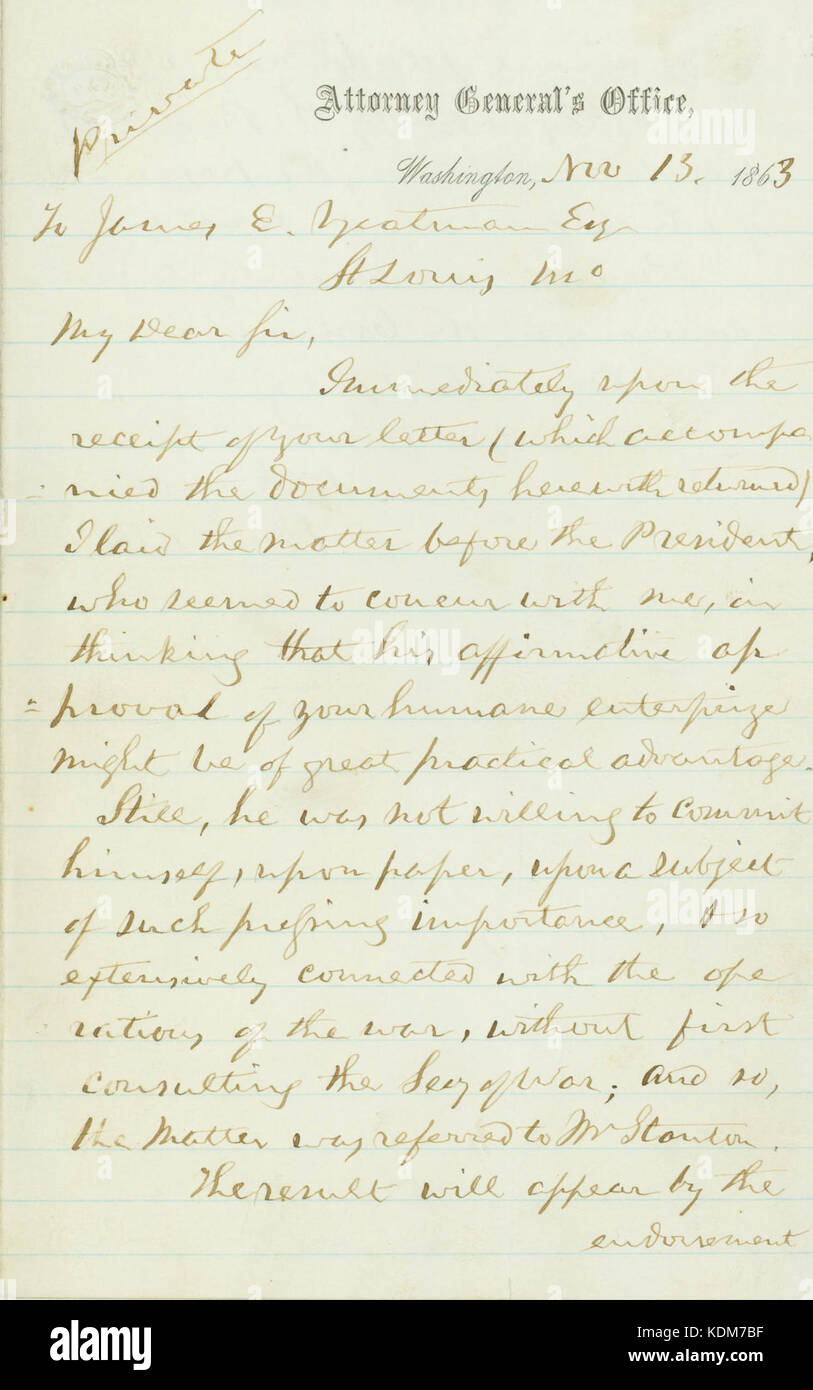 Private
Attorney General's Office,
Washington, Nov 13. 1863
To James E. Yeatman Esq
St Louis Mo
My Dear Sir,
Immediately upon the
receipt of your letter (which accompa
-nied the documents herewith returned)
I laid the matter before the President,
who seemed to concur with me, in
thinking that his affirmative ap
=proval of your humane enterprize
might be of great practical advantage.
Still, he was not willing to commit
himself, upon paper, upon a subject
of such pressing importance, & so
extensively connected with the ope
rations of the war, without first
consulting the Secy of War; and so,
the Matter was referred to Mr Stanton.
The result will appear by the
endorsement
alamy
alamy
alamy
alamy
Image ID: KDM7BF
www.alamy.com